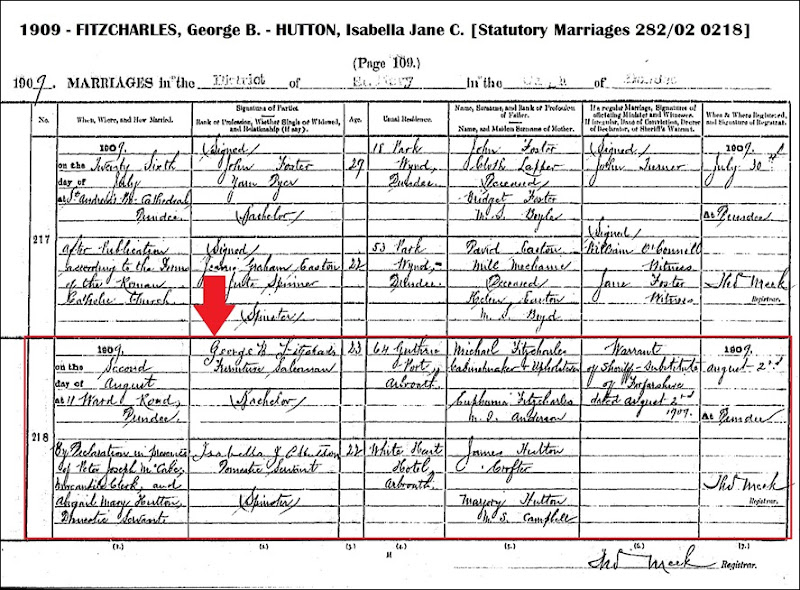 1909 - FITZCHARLES, George B. - HUTTON, Isabella Jane C. [Statutory Marriages 282/02 0218]
(Page 109.)
1909. MARRIAGES in the District of St. Mary in the Burgh of Dundee
No.
When, Where, and How Married.
Signatures of Parties
Rank or Profession, Whether Single or Widowed, and Relationship (if any).
Age.
Usual Residence.
Name, Surname, and Rank or Profession of Father.
Name, and Maiden Surname of Mother.
If a regular Marriage, Signatures of officiating Minister and Witnesses.
If irregular, Date of Conviction, Decree of Declarator, or Sheriff's Warrant.
When & Where Registered, and Signature of Registrar.
217
1909.
on the Twenty Sixth
day of July
at St Andrew's Cathedral
Dundee
After Publication
according to the Forms
of the Roman
Catholic Church
(Signed)
John Foster
Yarn Dyer
(Bachelor)
(Signed)
Graham Easton
Jute Spinner
(Spinster)
27
22
18 Park
Wynd
Dundee
53 Park
Wynd,
Dundee
John Foster
Cloth Lapper
Deceased
Bridget Foster
M.S. Boyle
David Easton
Mill Mechanic
Deceased
Helen Easton
M.S. Boyd
(Signed)
John Turner
(Signed)
William O'Connill
Witness
Jane Foster
Witness
1909.
July 30th
At Dundee
Thos Meek
Registrar.
218
1909.
on the Second
day of August
at 11 Ward Road,
Dundee
By Declaration in presence
of Peter Joseph McCabe,
Mercantile Clerk, and
Abigail Mary Hutton,
Domestic Servant
George B Fitzchals
Furniture Salesman
(Bachelor)
Isabella J C Hutton
Domestic Servant
(Spinster)
23
22
64 Guthrie
Port,
Arbroath
White Hart
Hotel,
Arbroath
Michael Fitzcharles
Cabinetmaker & Upholsterer
Euphemia Fitzcharles
M.S. Anderson
James Hutton
Crofter
Marjory Hutton
M.S. Campbell
Warrant
of Sheriff-Substitute
of Forfarshire
dated August 2nd
1909.
1909
August 2nd
At Dundee
Thos Meek
Registrar.
(1.)
(2.)
(3.)
(4.)
(5.)
(6.)
(7.)
H
Thos Meek
Registrar.